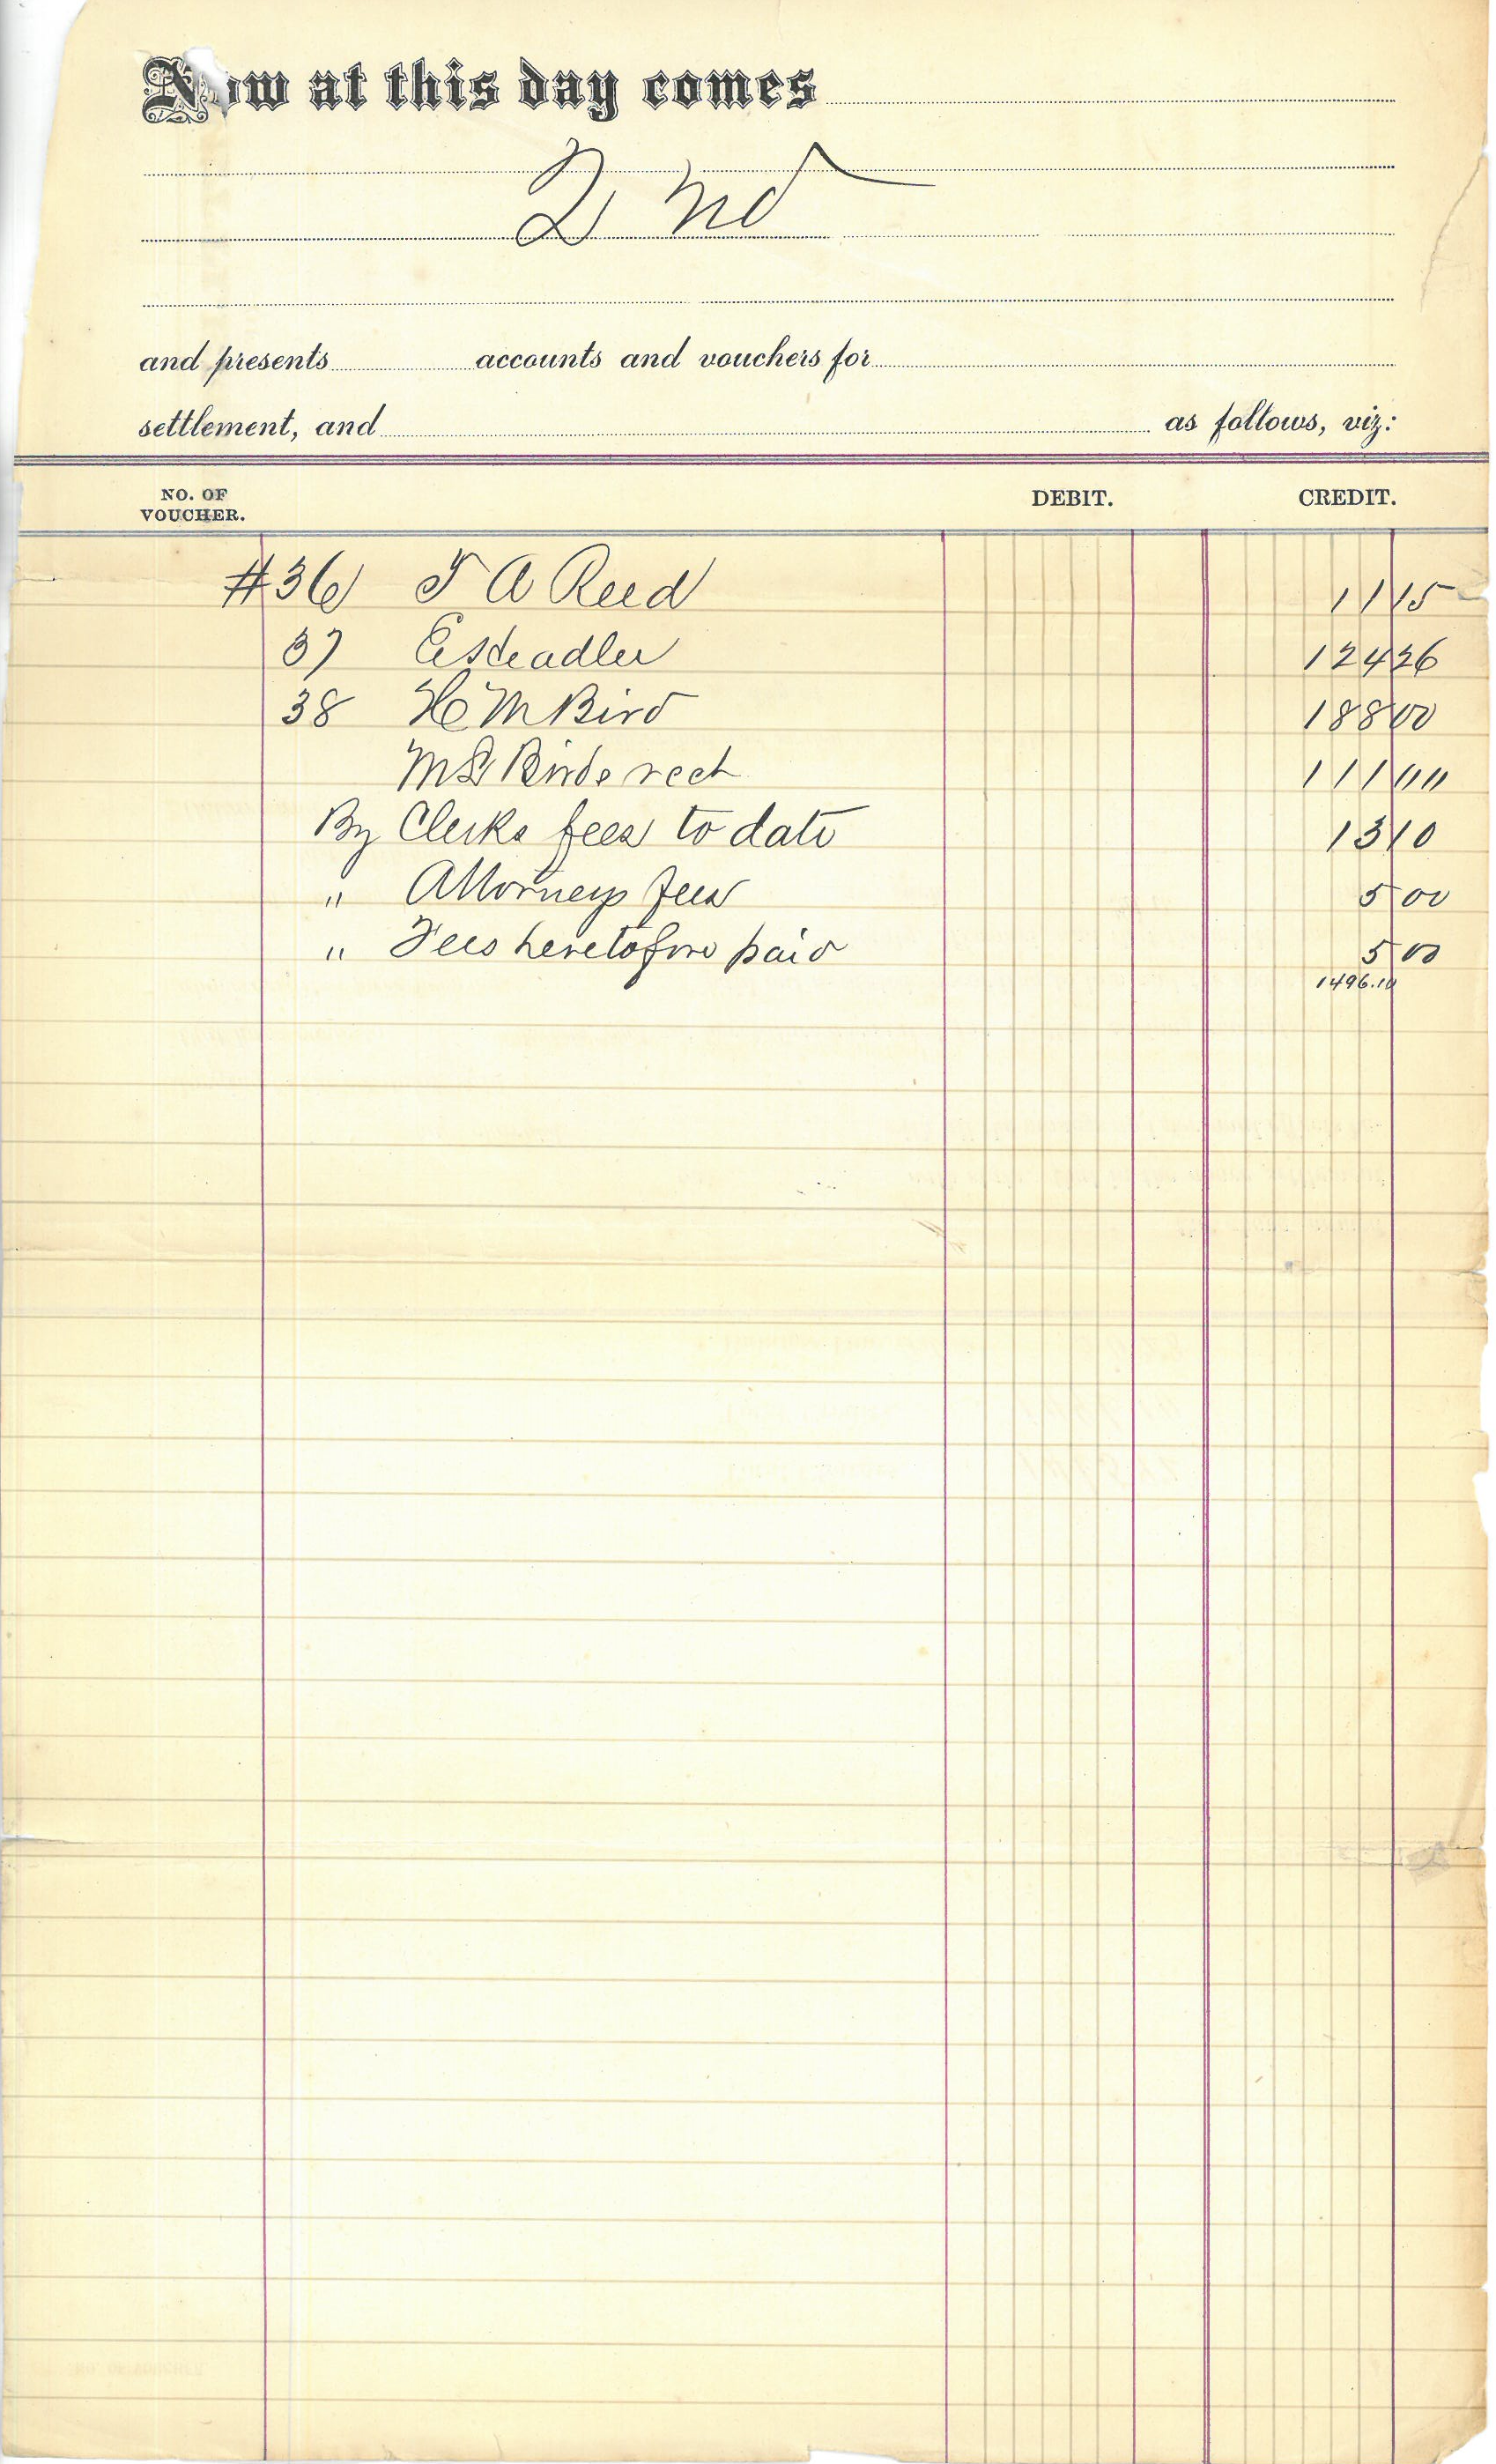 Now at this day comes
2 nd
and presents accounts and vouchers for
settlement, and as follows, viz:
NO. OF VOUCHER. DEBIT. CREDIT.
#36 T A Reed 11 15
37 E Steadler 124 26
38 H M Bird 188 00
M L Birds rect 111 11
By Clerks fees to date 13 10
" Attorneys fees 5 00
" Fees heretofore paid 5 00
1496.10